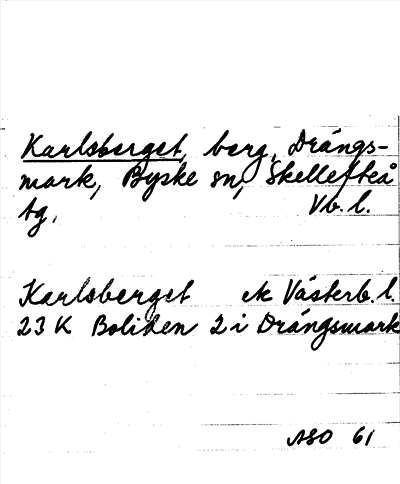 Karlsberget, berg, Drängs-
mark, Byske sn, Skellefteå
tg, Vb. l.
Karlsberget ek Västerb. l.
23 K Boliden 2 i Drängsmark
ASO 61